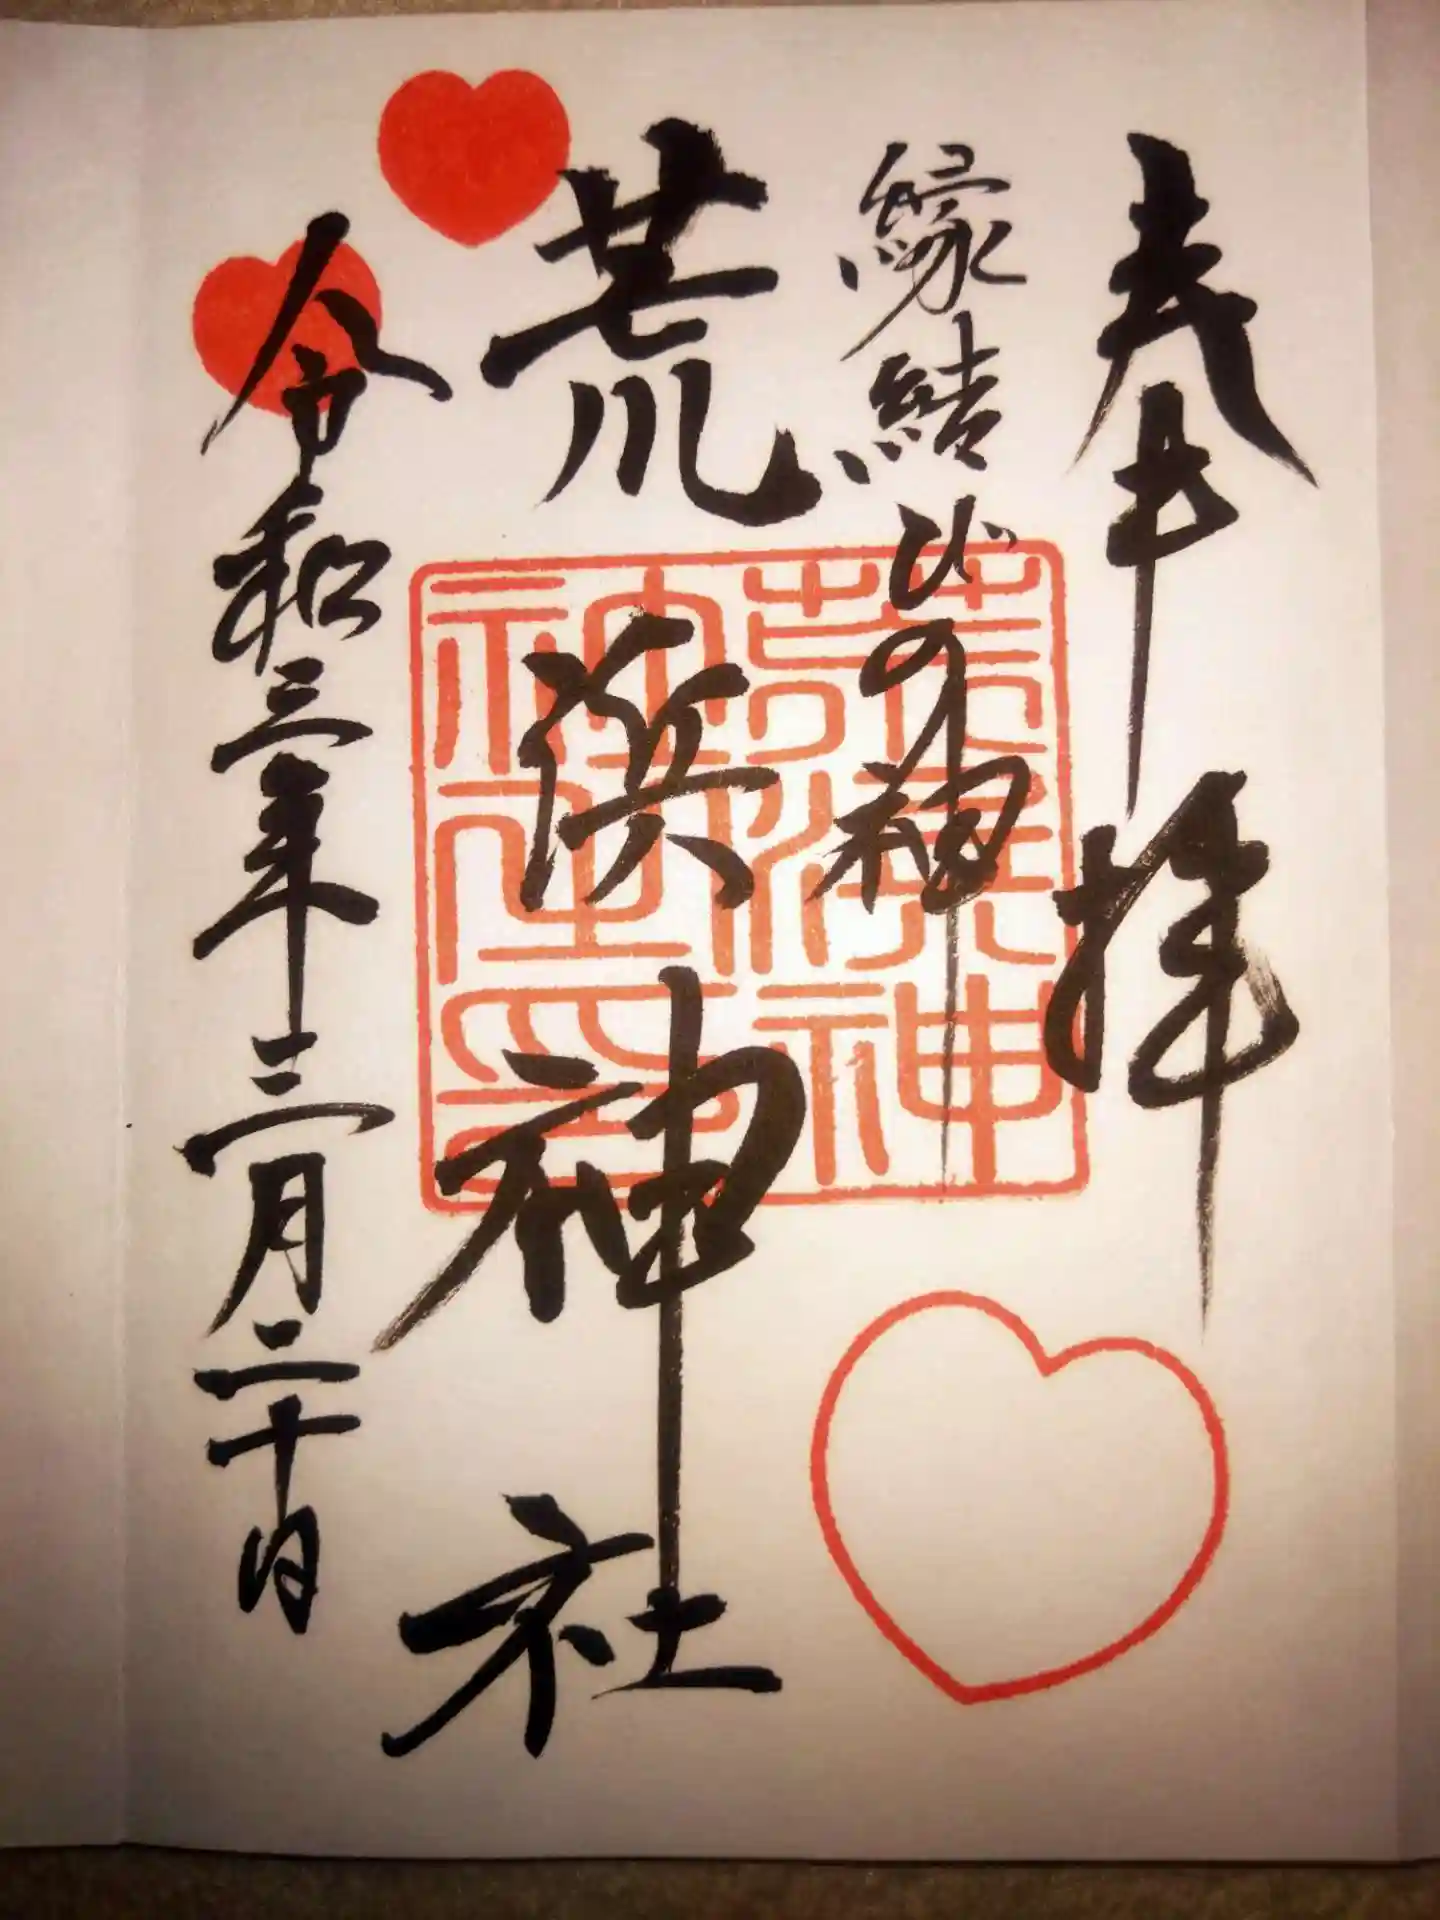 奉拝
縁結びの神
荒浜神社
令和三年三月二十日
荒濱神
社之印